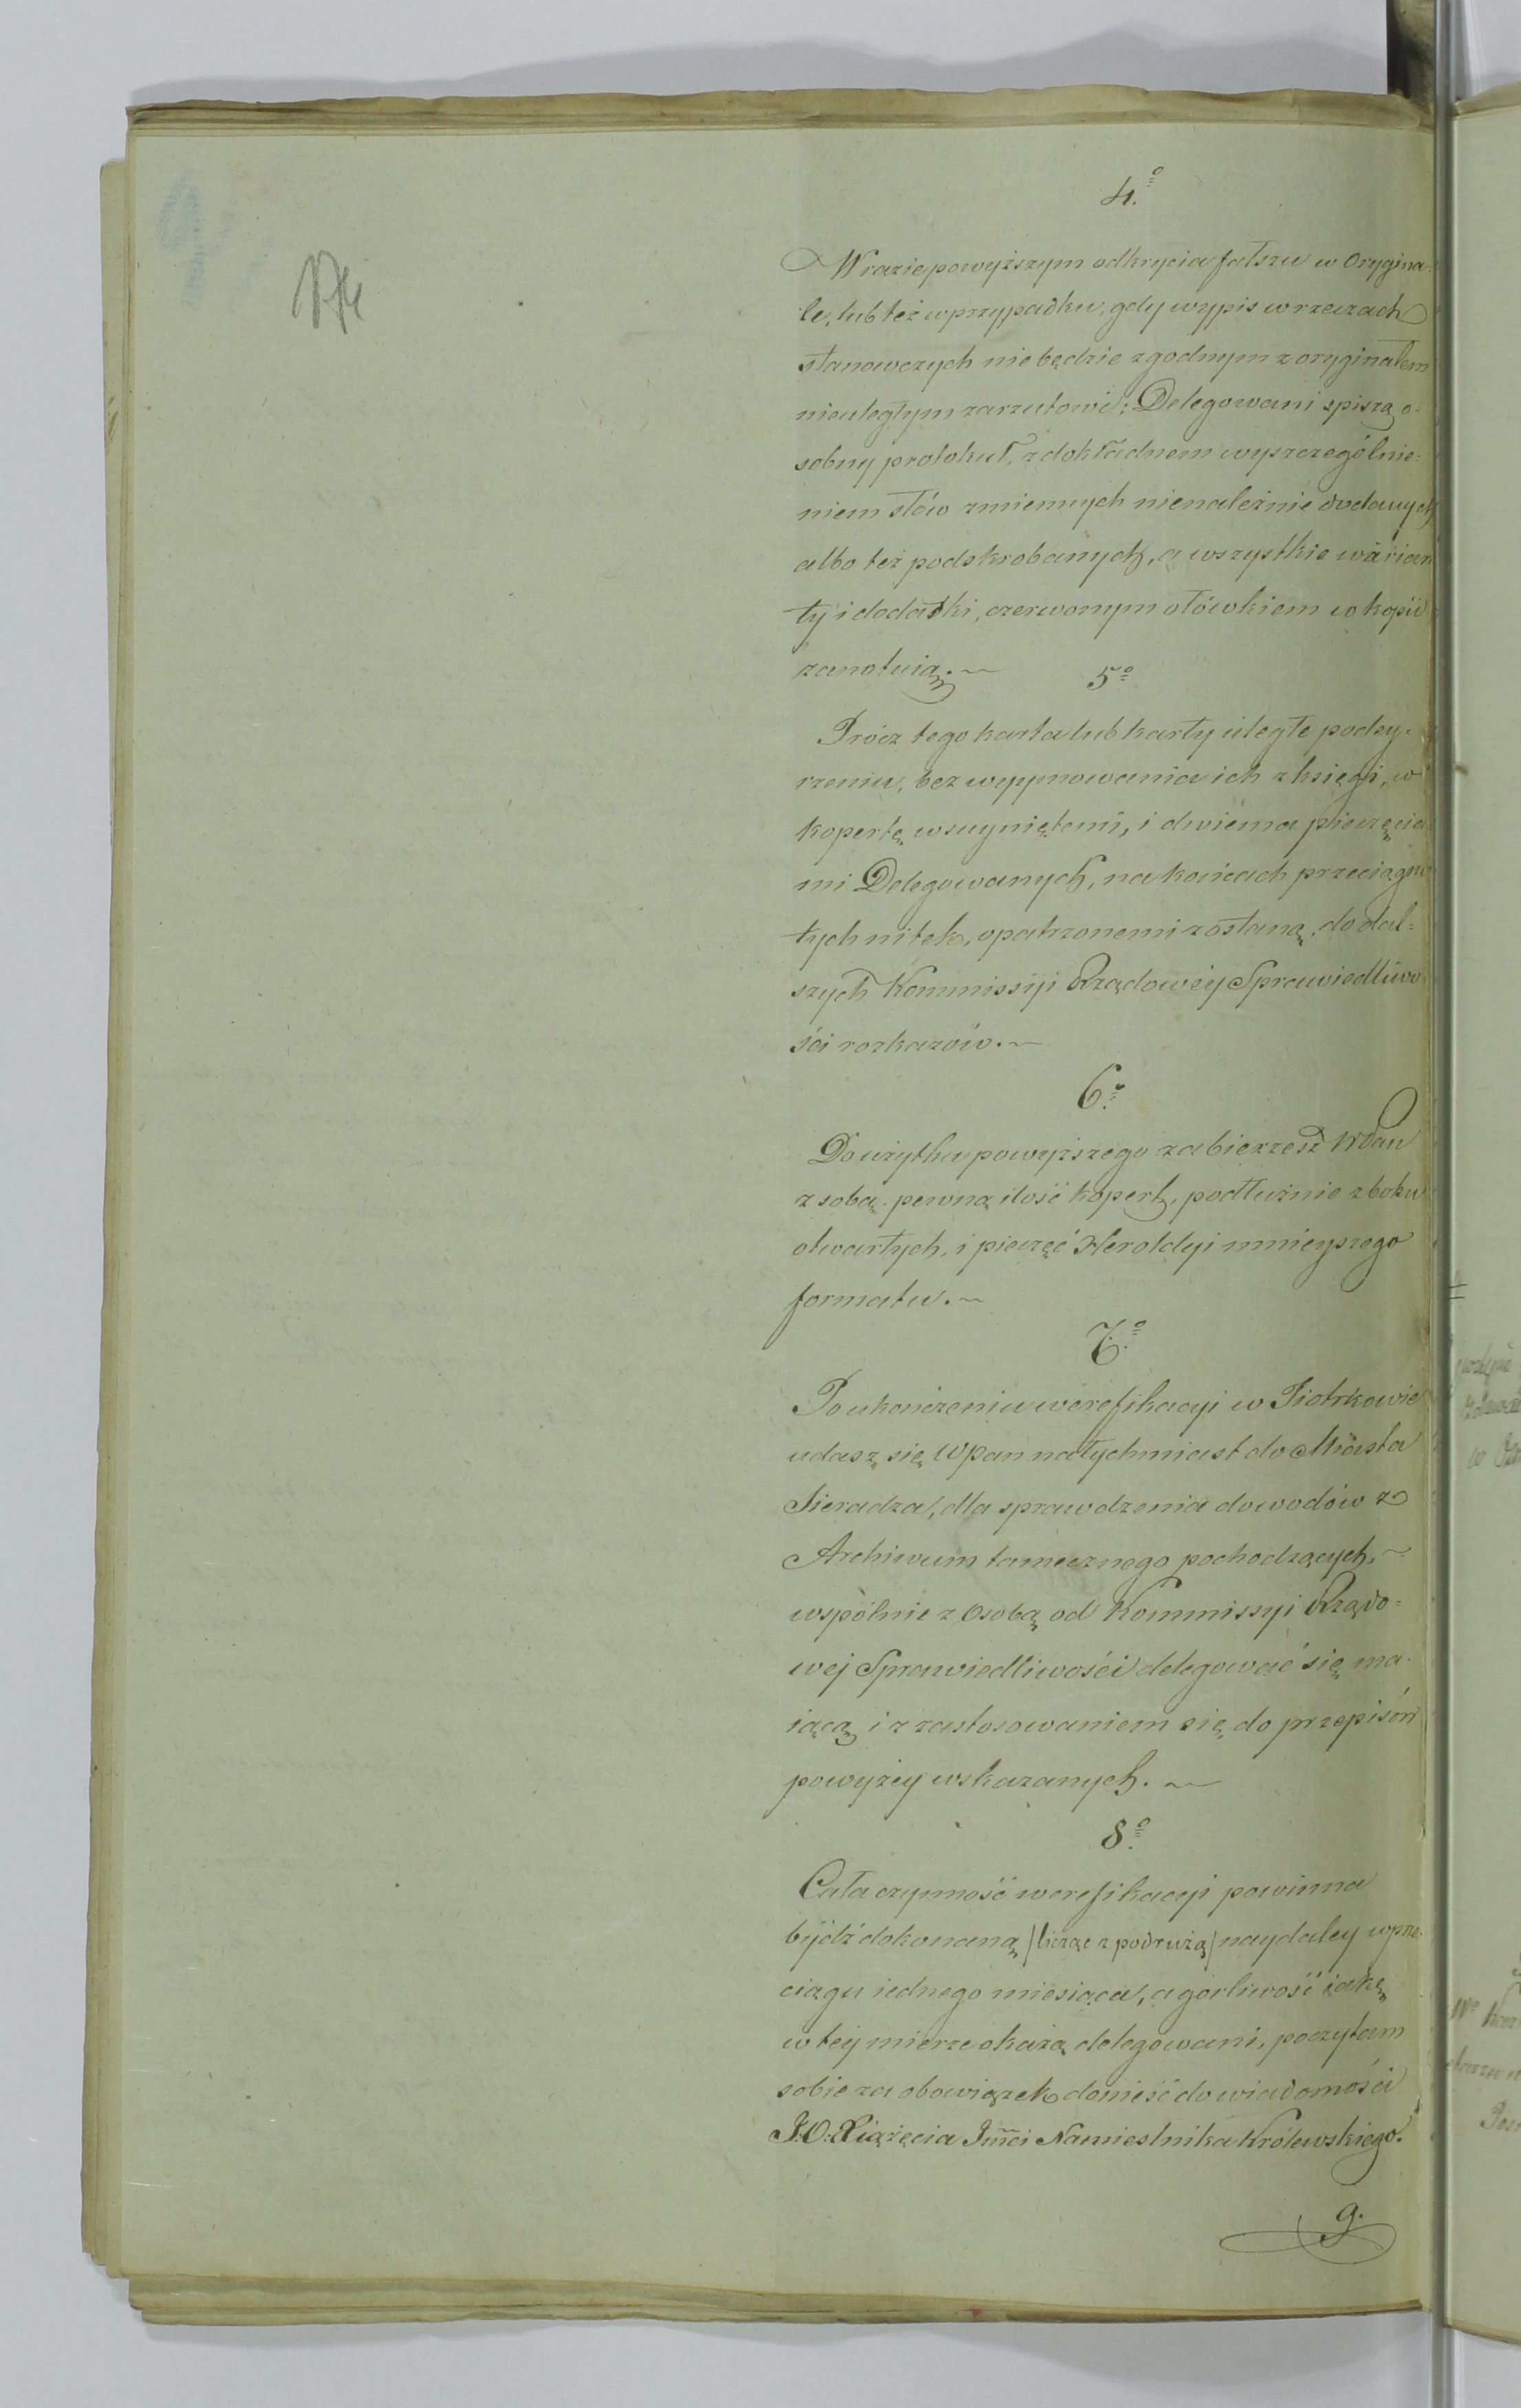 4.º
W razie powyższym odkrycia fałszu w Orygina=
le, lub też w przypadku, gdy wypis w rzeczach
stanowczych nie będzie zgodnym z oryginałem
nieuległym zarzutowi; Delegowani spiszą o=
sobny protokuł, z dokładnem wyszczególnie=
niem słów zmiennych nienależnie dodanych
albo też podskrobanych, a wszystkie warian
ty i dodatki, czerwonym ołówkiem w kopii
zanotuią.
5º
Prócz tego karta lub karty uległe podey=
rzeniu, bez weyymowania ich z księgi, w
kopertę wsuyniętemi, i dwiema pieczęcia=
mi Delegowanych, na końcach przeciągnię
tych nitek, opatrzonemi zostaną, do dal=
szych Kommissyi Rządowéy Sprawiedliwo=
ści rozkazów.
6.º
Do użytku powyższego zabierzesz WPan
z sobą pewną ilość kopert, podłużnie z boku
otwartych, i pieczęć Heroldyi mnieyszego
formatu.
7.º
Po ukończeniu werefikacyi w Piotrkowie
udasz się WPan natychmiast do Miasta
Sieradza, dla sprawdzenia dowodów z
Archiwum tamecznego pochodzących,
wspólnie z Osobą od Kommissyi Rządo=
wej Sprawiedliwości delegować się ma=
iącą i z zastosowaniem się do przepisów
powyżey wskazanych.
8.º
Cała czynność werefikacyi powinna
bydź dokonaną /licząc z podrużą/ naydaley w prze=
ciągu iednego miesiąca, a gorliwość iaką
w téy mierze okażą delegowani, poczytam
sobie za obowiązek donieść do wiadomości
J.O. Xiążęcia Jmći Namiestnika Królewskiego.
9.